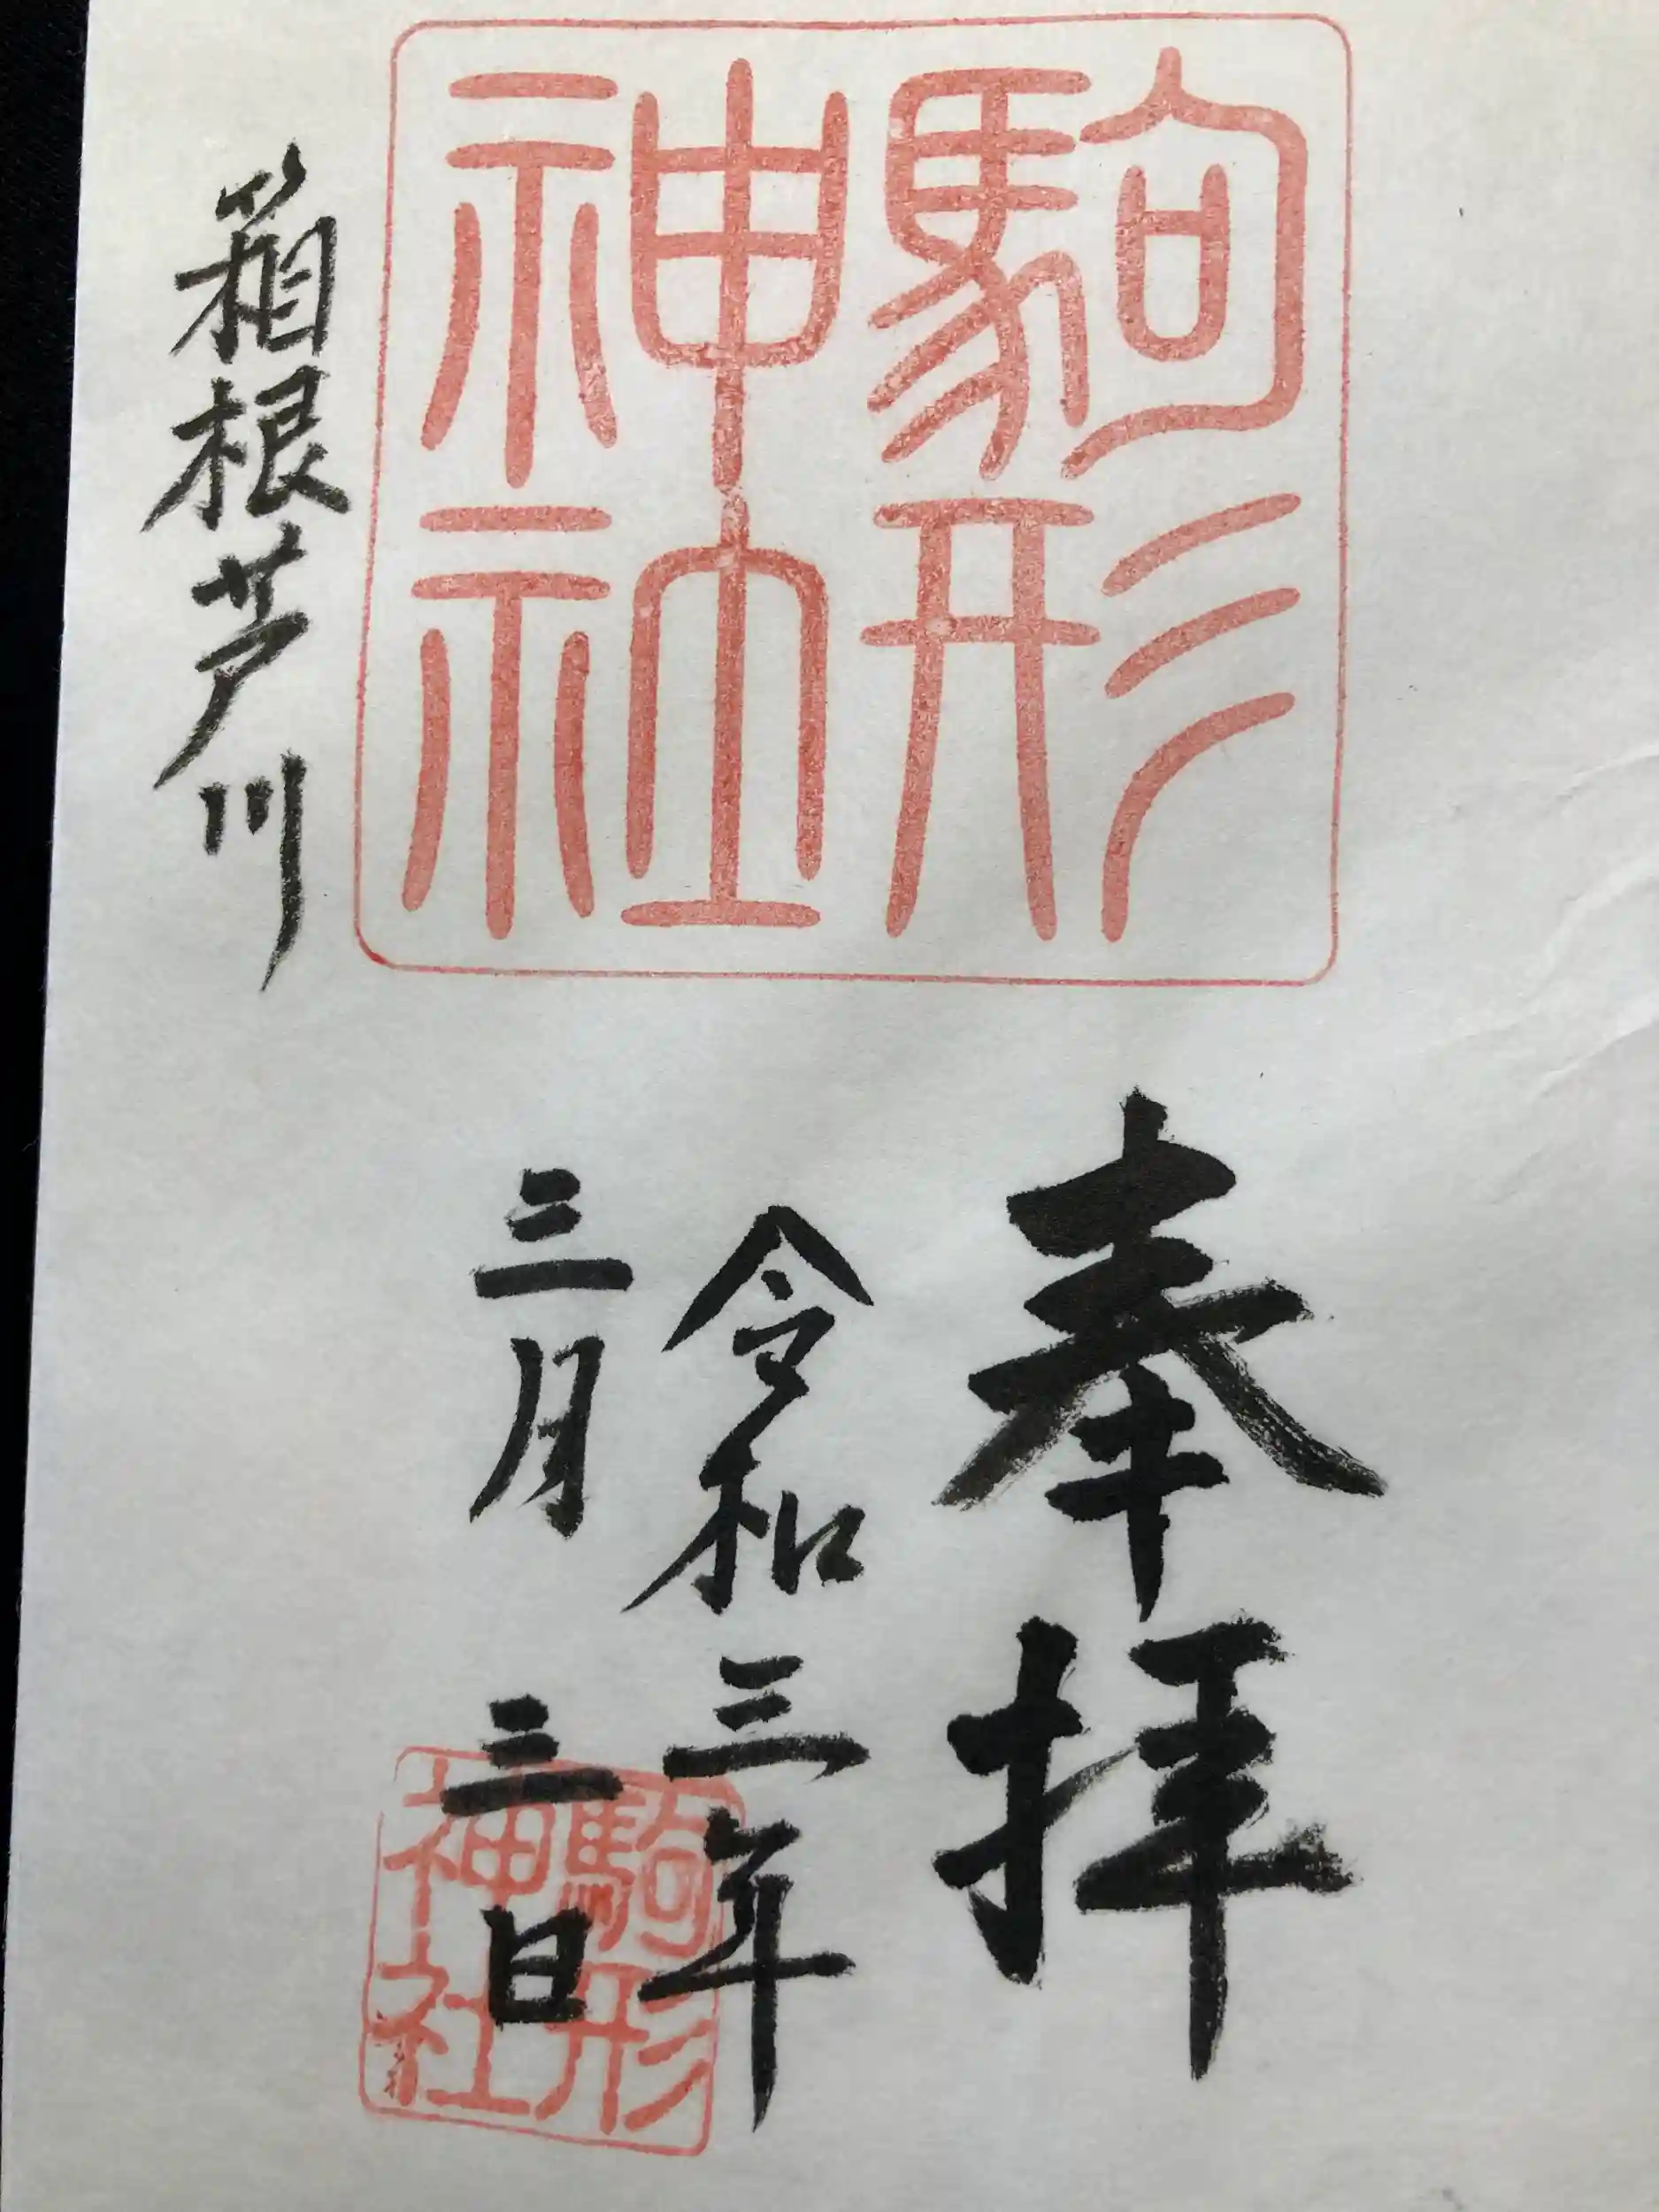 駒形
神社
奉拝
令和三年
三月三日
箱根芦川
駒形
神社